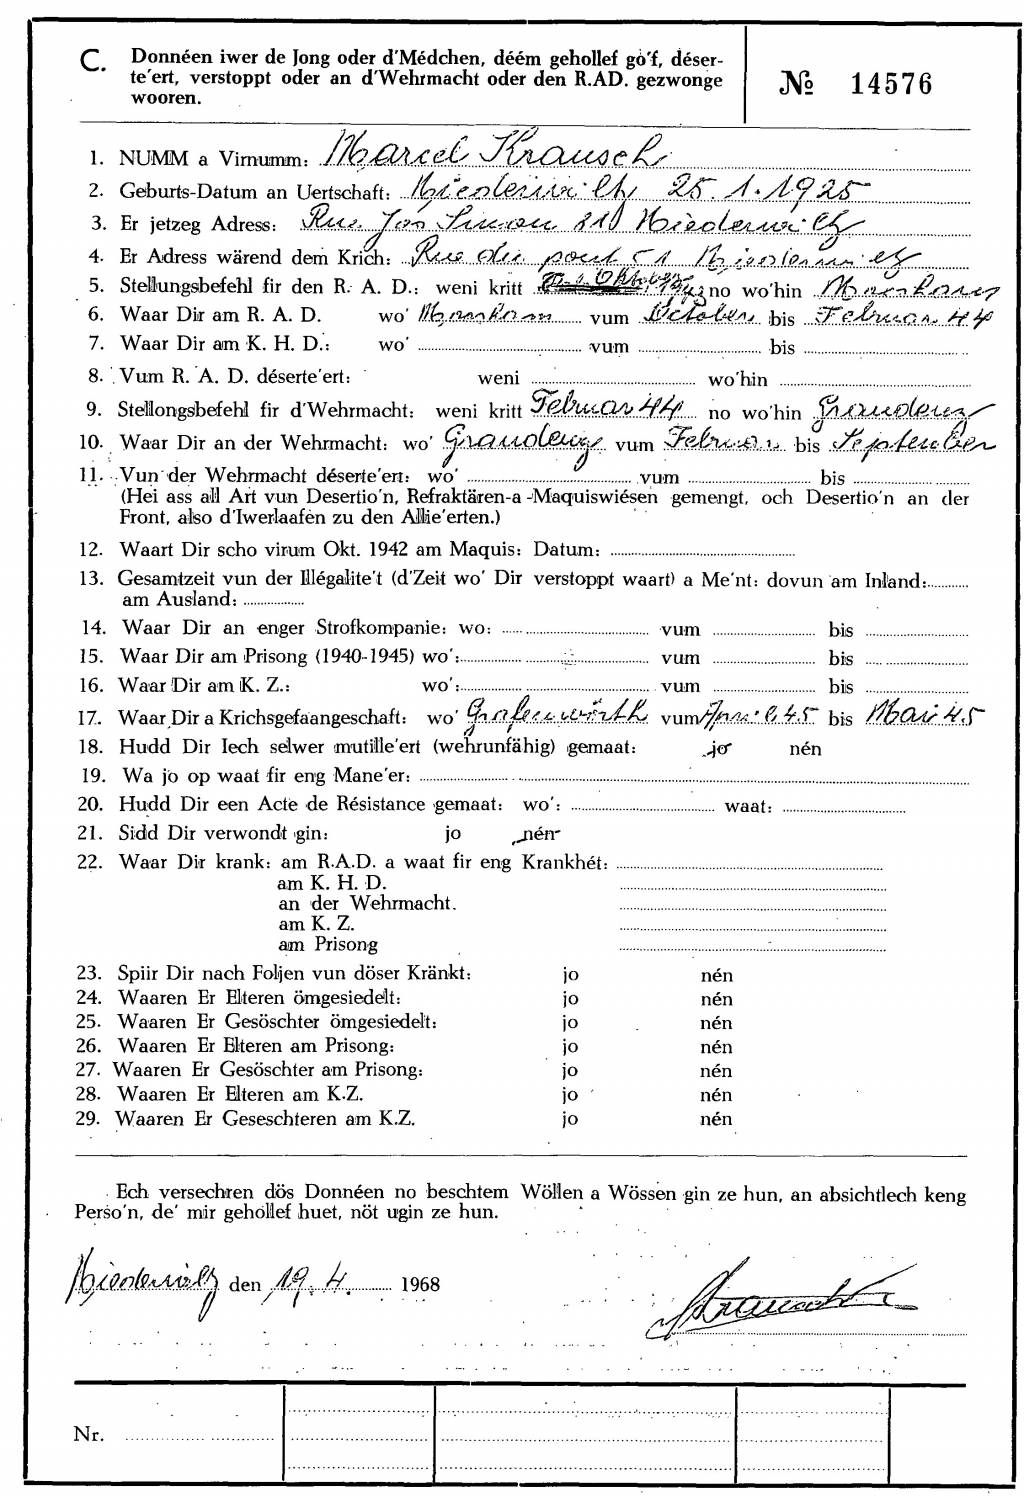 C. Donnéen iwer de Jong oder d'Médchen, déém gehollef gò'f, déser-
te'ert, verstoppt oder an d'Wehrmacht oder den R.AD. gezwonge
wooren.
№ 14576
1. NUMM a Virnumm: Marcel Krausch
2. Geburts-Datum an Uertschaft: Niederwiltz 25.1.1925
3. Er jetzeg Adress: Rue Jos Simon 210 Niederwiltz
4. Er Adress wärend dem Krich: Rue du pont 51 Niederwiltz
5. Stellungsbefehl fir den R. A. D.: weni kritt Oktober no wo'hin
6. Waar Dir am R. A. D. wo' vum October bis Februar 44
7. Waar Dir am K. H. D.: wo' vum bis
8. Vum R. A. D. déserte'ert: weni wo'hin
9. Stellongsbefehl fir d'Wehrmacht: weni kritt Februar 44 no wo'hin Graudenz
10. Waar Dir an der Wehrmacht: wo' Graudenz vum Februar bis September
11. Vun der Wehrmacht déserte'ert: wo' vum bis
(Hei ass all Art vun Desertio'n, Refraktären-a -Maquiswiésen gemengt, och Desertio'n an der
Front, also d'Iwerlaafen zu den Allie'erten.)
12. Waart Dir scho virum Okt. 1942 am Maquis: Datum:
13. Gesamtzeit vun der Illégalite't (d'Zeit wo' Dir verstoppt waart) a Me'nt: dovun am Inland:
am Ausland:
14. Waar Dir an enger Strofkompanie: wo: vum bis
15. Waar Dir am Prisong (1940-1945) wo': vum bis
16. Waar Dir am K. Z.: wo': vum bis
17. Waar Dir a Krichsgefaangeschaft: wo' Grafenwörth vum April 45 bis Mai 45
18. Hudd Dir Iech selwer mutille'ert (wehrunfähig) gemaat: jo nén
19. Wa jo op waat fir eng Mane'er:
20. Hudd Dir een Acte de Résistance gemaat: wo': waat:
21. Sidd Dir verwondt gin: jo nén
22. Waar Dir krank: am R.A.D. a waat fir eng Krankhét:
am K. H. D.
an der Wehrmacht.
am K. Z.
am Prisong
23. Spiir Dir nach Foljen vun döser Kränkt: jo nén
24. Waaren Er Elteren ömgesiedelt: jo nén
25. Waaren Er Gesöschter ömgesiedelt: jo nén
26. Waaren Er Elteren am Prisong: jo nén
27. Waaren Er Gesöschter am Prisong: jo nén
28. Waaren Er Elteren am K.Z. jo nén
29. Waaren Er Geseschteren am K.Z. jo nén
Ech versechren dös Donnéen no beschtem Wöllen a Wössen gin ze hun, an absichtlech keng
Perso'n, de' mir gehollef huet, nöt ugin ze hun.
Niederwiltz den 19.4. 1968
Krausch
Nr.